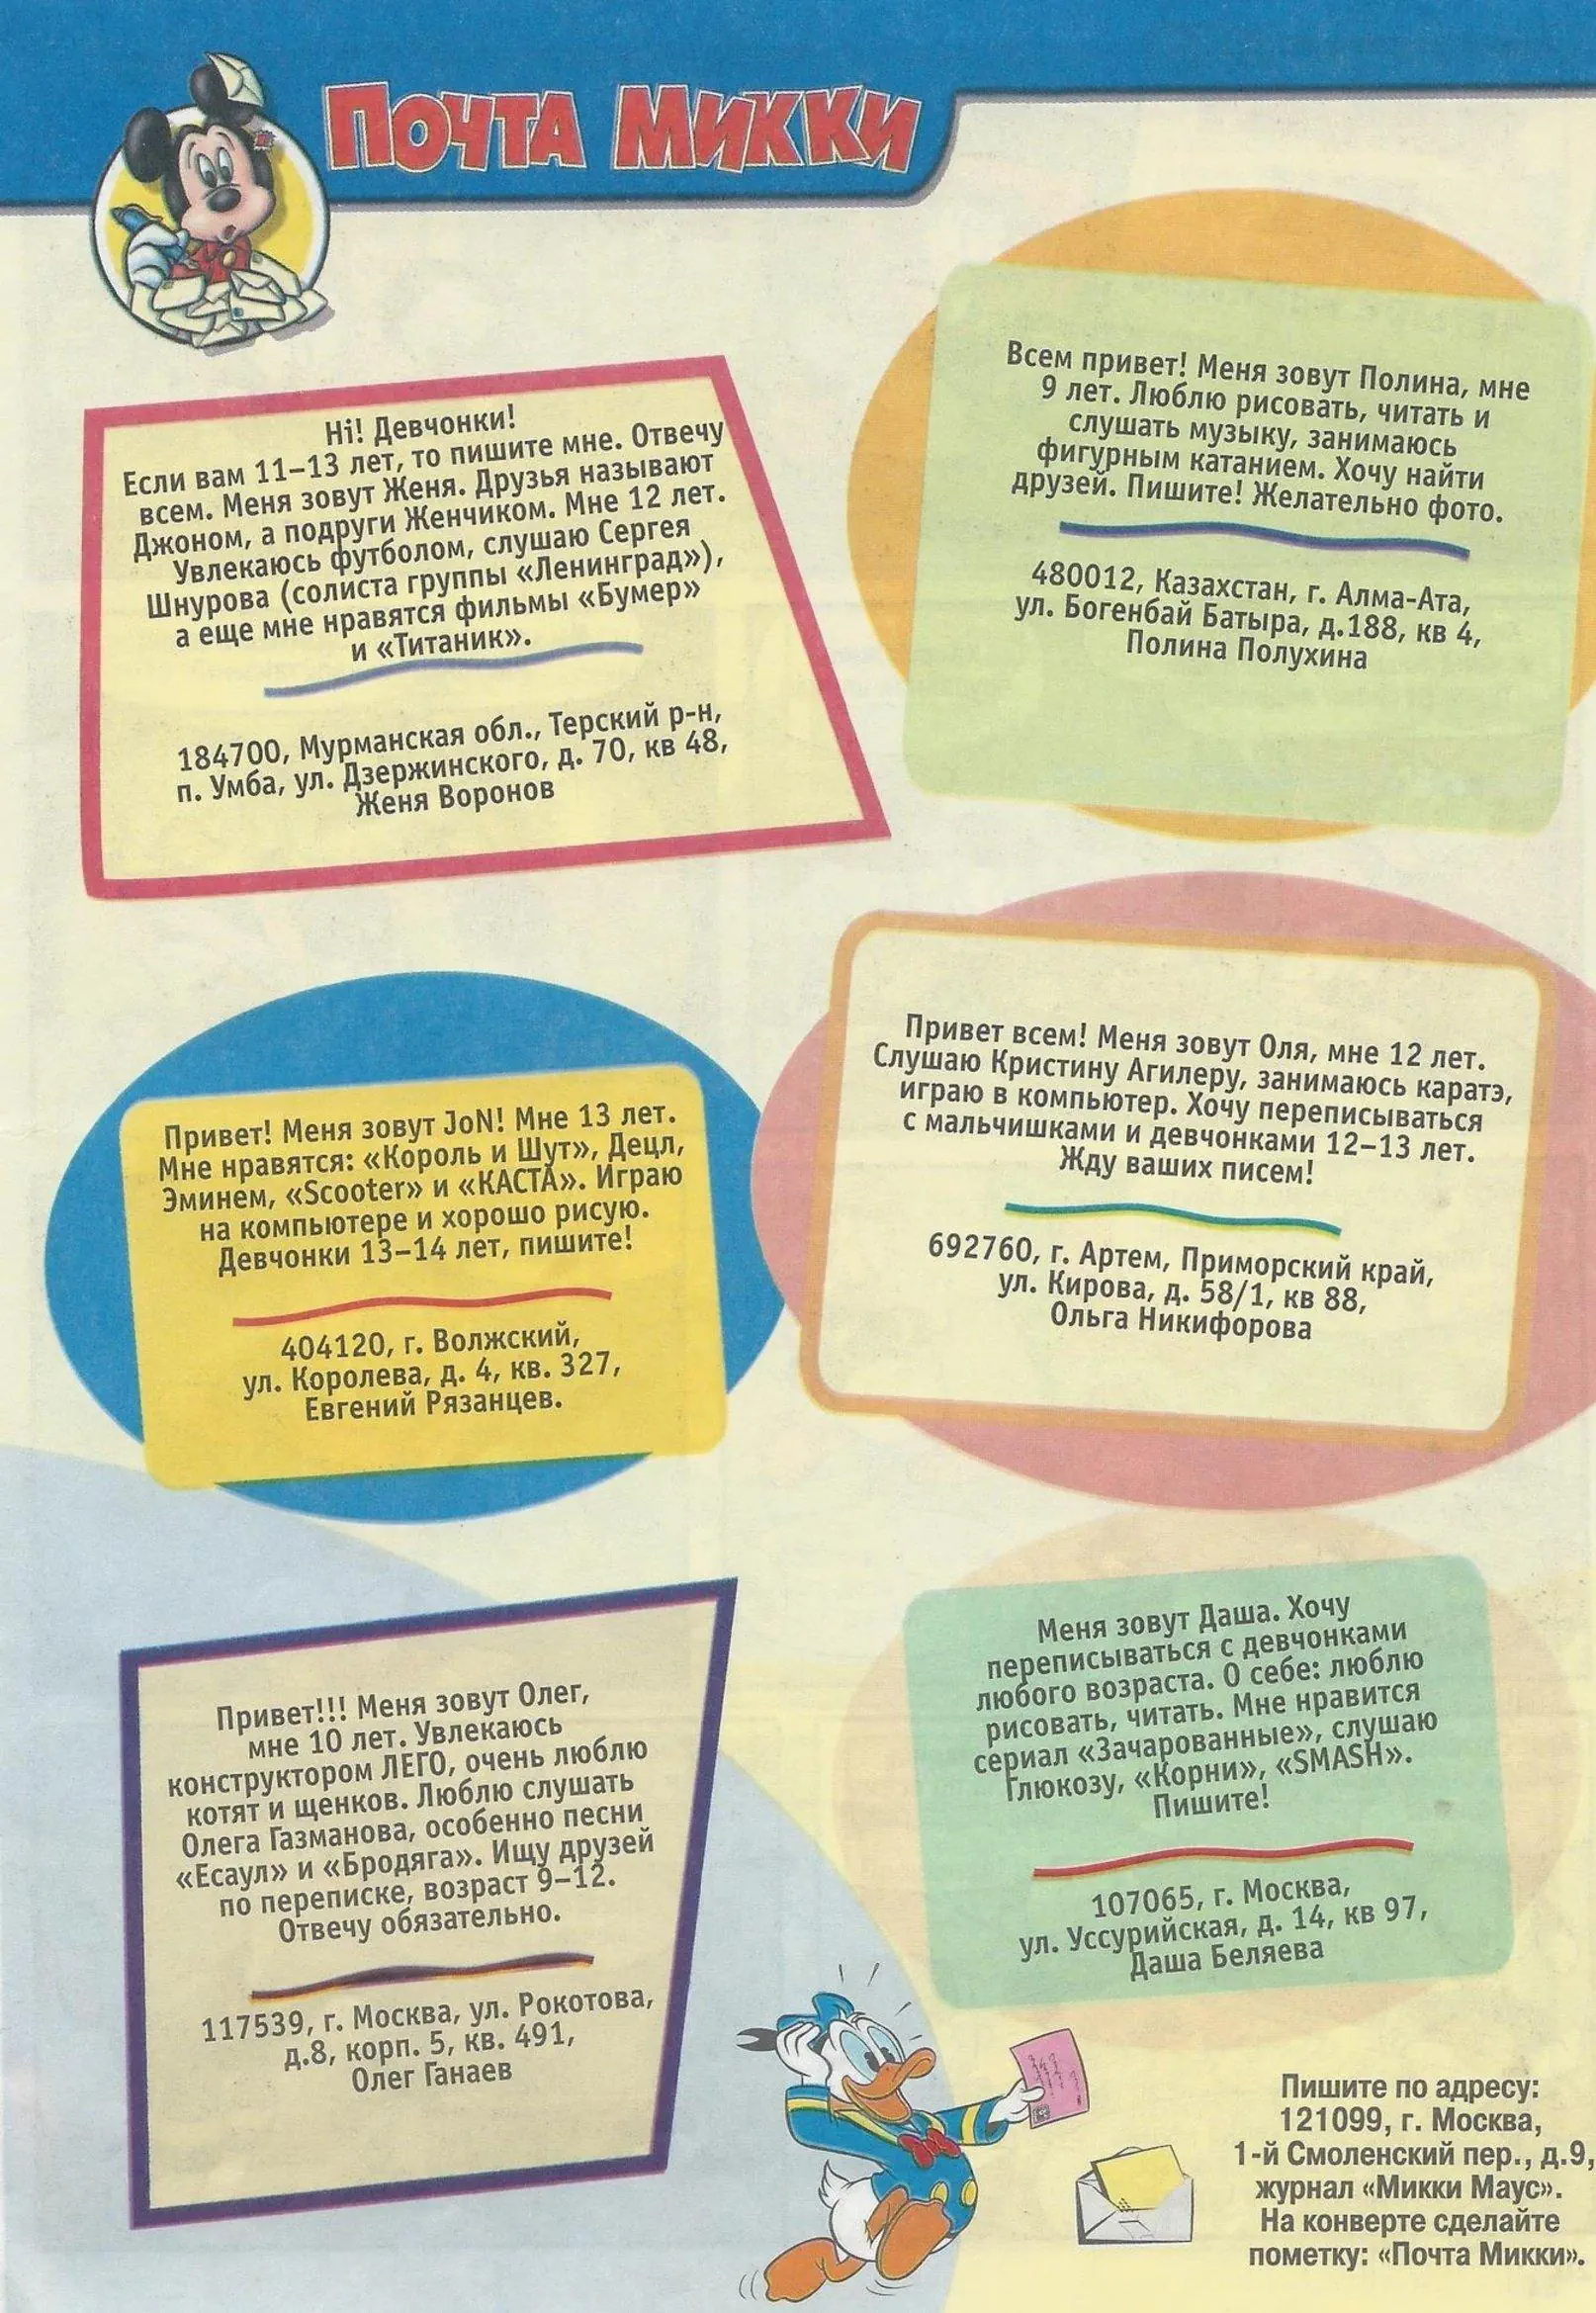 Почта Микки
Hi! Девчонки!
Если вам 11–13 лет, то пишите мне. Отвечу
всем. Меня зовут Женя. Друзья называют
Джоном, а подруги Женчиком. Мне 12 лет.
Увлекаюсь футболом, слушаю Сергея
Шнурова (солиста группы «Ленинград»),
а еще мне нравятся фильмы «Бумер»
и «Титаник».
184700, Мурманская обл., Терский р-н,
п. Умба, ул. Дзержинского, д. 70, кв 48,
Женя Воронов
Всем привет! Меня зовут Полина, мне
9 лет. Люблю рисовать, читать и
слушать музыку, занимаюсь
фигурным катанием. Хочу найти
друзей. Пишите! Желательно фото.
480012, Казахстан, г. Алма-Ата,
ул. Богенбай Батыра, д.188, кв 4,
Полина Полухина
Привет! Меня зовут JoN! Мне 13 лет.
Мне нравятся: «Король и Шут», Децл,
Эминем, «Scooter» и «КАСТА». Играю
на компьютере и хорошо рисую.
Девчонки 13–14 лет, пишите!
404120, г. Волжский,
ул. Королева, д. 4, кв. 327,
Евгений Рязанцев.
Привет всем! Меня зовут Оля, мне 12 лет.
Слушаю Кристину Агилеру, занимаюсь каратэ,
играю в компьютер. Хочу переписываться
с мальчишками и девчонками 12–13 лет.
Жду ваших писем!
692760, г. Артем, Приморский край,
ул. Кирова, д. 58/1, кв 88,
Ольга Никифорова
Привет!!! Меня зовут Олег,
мне 10 лет. Увлекаюсь
конструктором ЛЕГО, очень люблю
котят и щенков. Люблю слушать
Олега Газманова, особенно песни
«Есаул» и «Бродяга». Ищу друзей
по переписке, возраст 9–12.
Отвечу обязательно.
117539, г. Москва, ул. Рокотова,
д.8, корп. 5, кв. 491,
Олег Ганаев
Меня зовут Даша. Хочу
переписываться с девчонками
любого возраста. О себе: люблю
рисовать, читать. Мне нравится
сериал «Зачарованные», слушаю
Глюкозу, «Корни», «SMASH».
Пишите!
107065, г. Москва,
ул. Уссурийская, д. 14, кв 97,
Даша Беляева
Пишите по адресу:
121099, г. Москва,
1-й Смоленский пер., д.9,
журнал «Микки Маус».
На конверте сделайте
пометку: «Почта Микки».